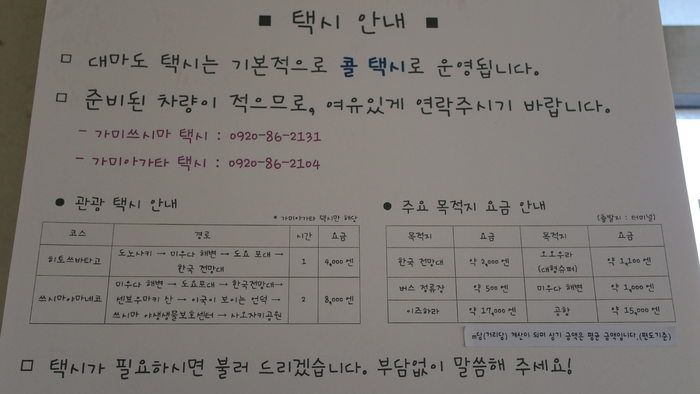 ■ 택시 안내 ■
□ 대마도 택시는 기본적으로 콜 택시로 운영됩니다.
□ 준비된 차량이 적으므로, 여유있게 연락주시기 바랍니다.
- 가미쓰시마 택시 : 0920-86-2131
- 가미아가타 택시 : 0920-86-2104
● 관광 택시 안내
* 가미아가타 택시만 해당
코스 경로 시간 요금
히토쓰바타고 도노사키 → 미우다 해변 → 도요 포대 → 1 4,000 엔
한국 전망대
쓰시마야마네코 미우다 해변 → 도요포대 → 한국전망대→ 2 8,000 엔
센보우마키 산 → 이국이 보이는 언덕 →
쓰시마 야생생물보호센터 → 사오자키공원
● 주요 목적지 요금 안내
(출발지 : 터미널)
목적지 요금 목적지 요금
한국 전망대 약 2,000 엔 오오우라 약 1,100 엔
(대형슈퍼)
버스 정류장 약 500 엔 미우다 해변 약 1,000 엔
이즈하라 약 17,000 엔 공항 약 15,000 엔
m당(거리당) 계산이 되며 상기 금액은 평균 금액입니다.(편도기준)
□ 택시가 필요하시면 불러 드리겠습니다. 부담없이 말씀해 주세요!